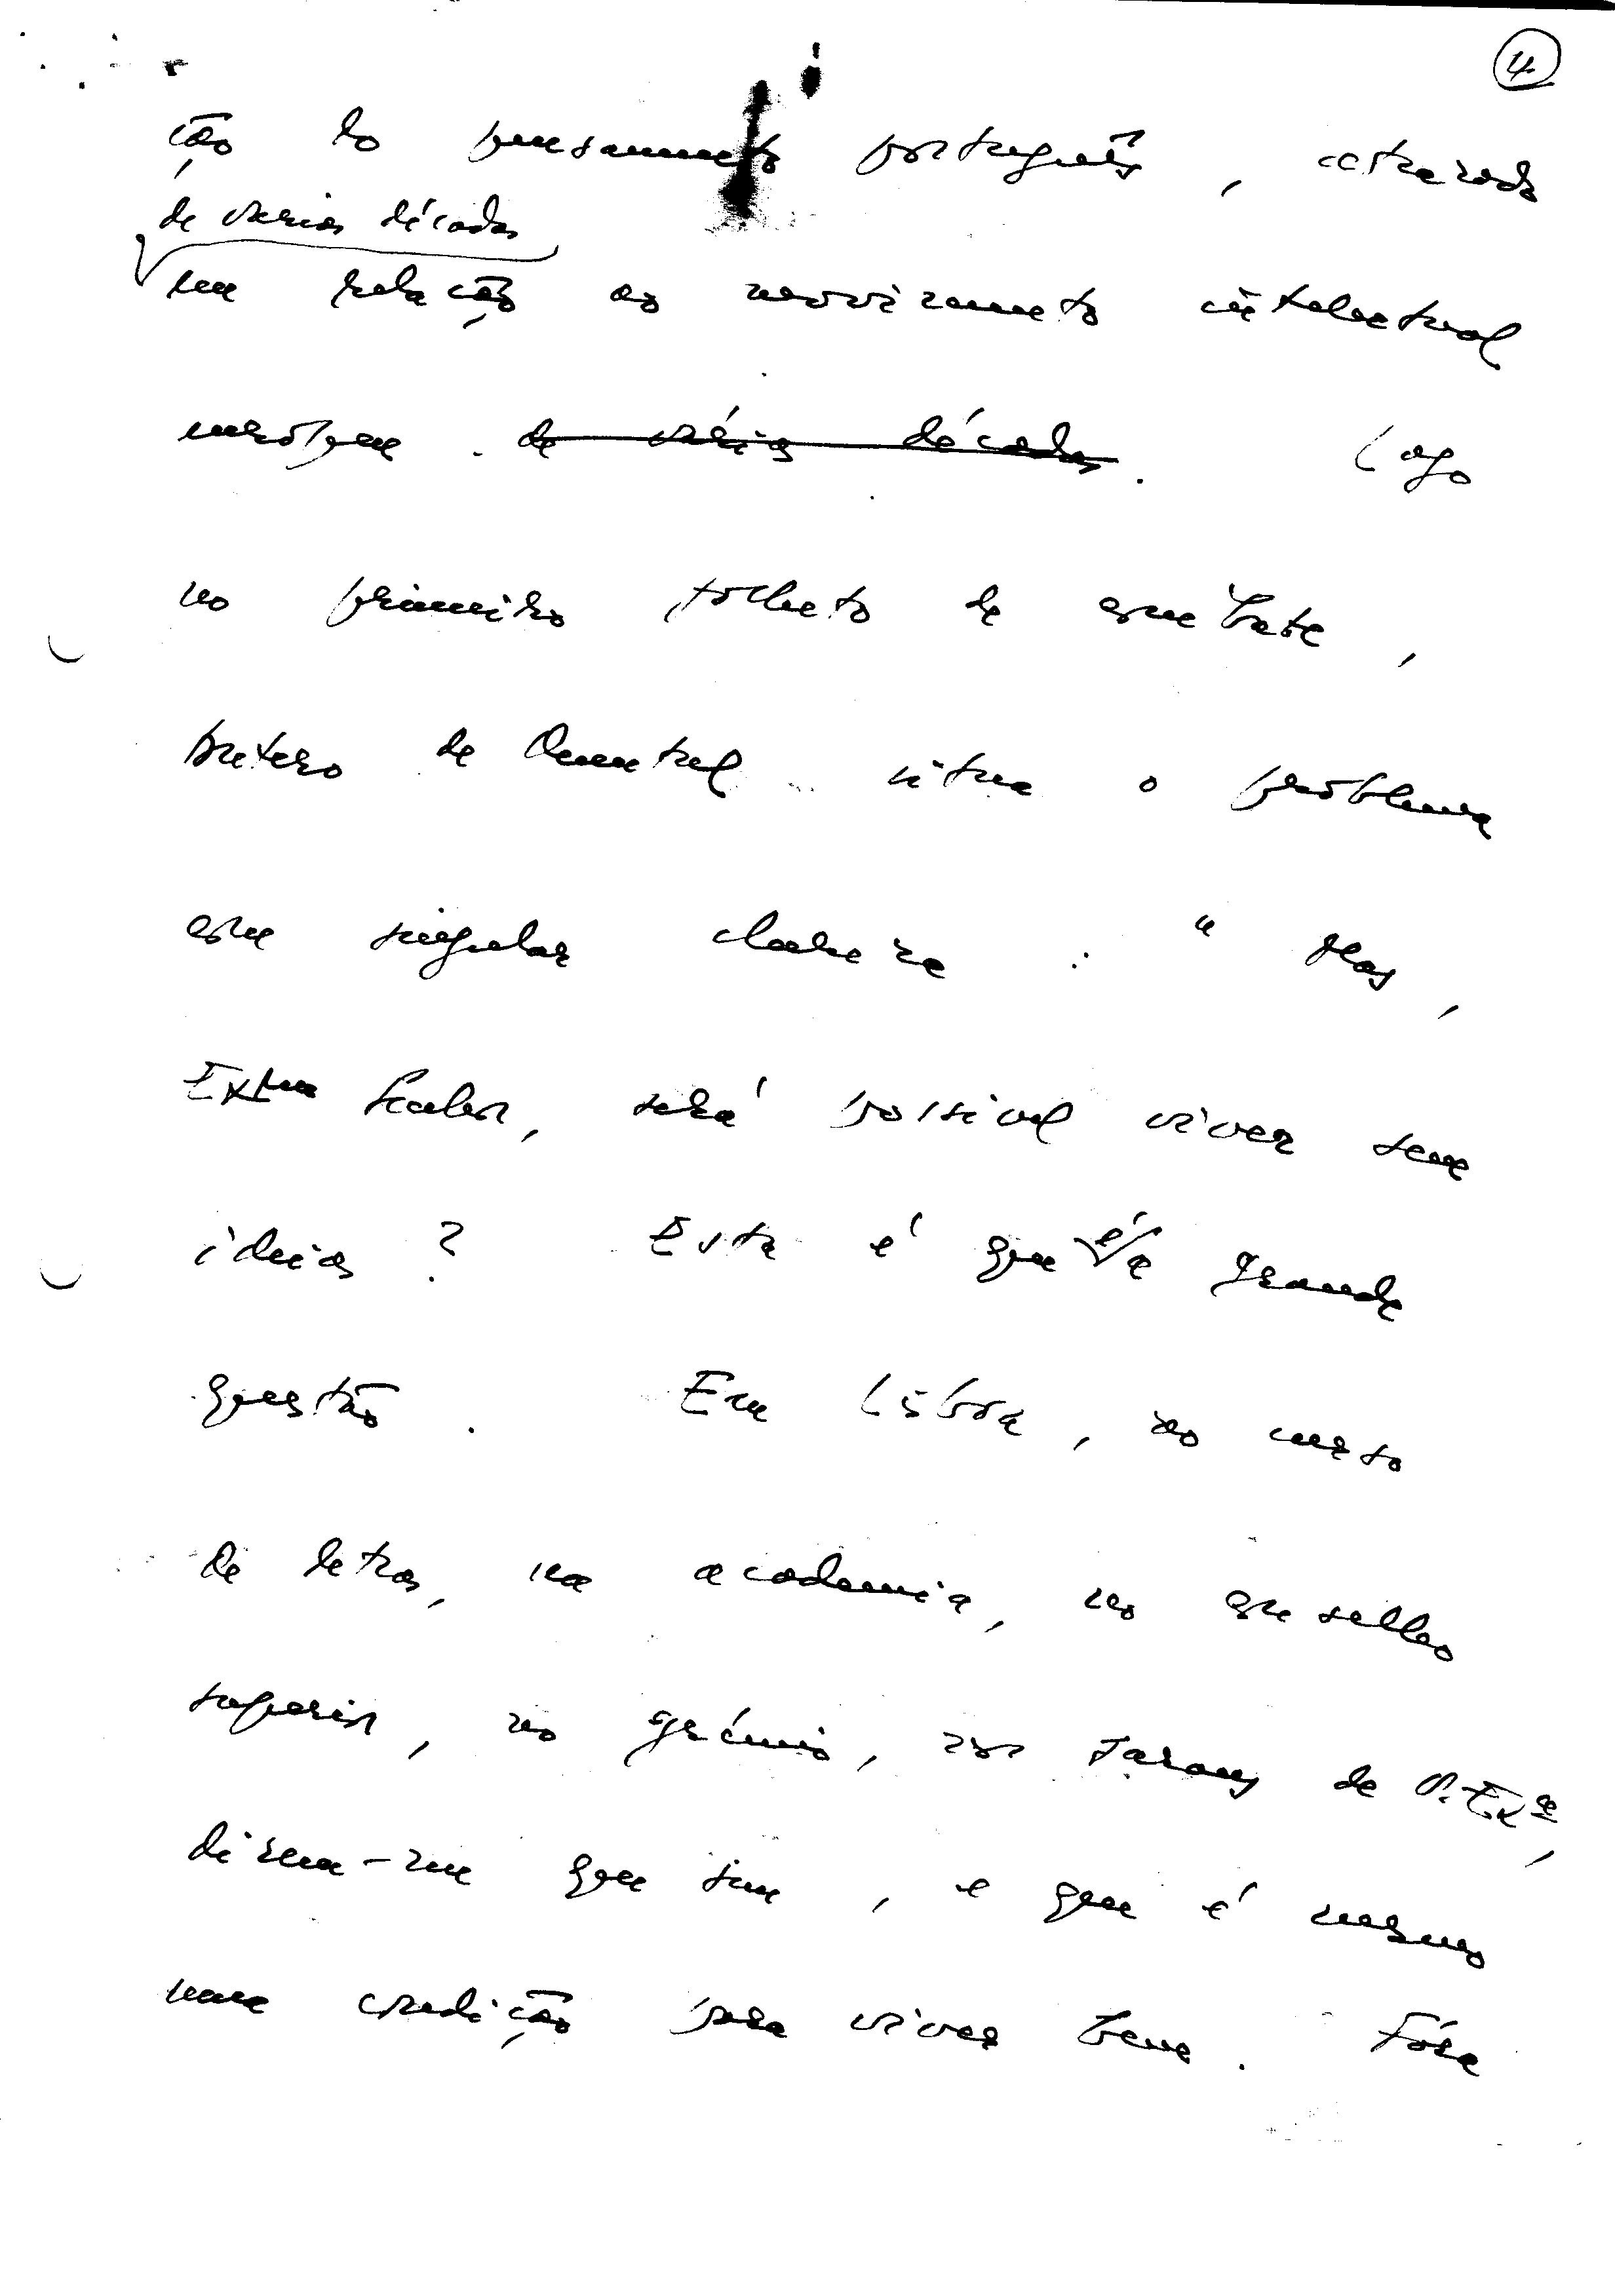 4
ção do pensamento português, atrasado
de várias décadas
em relação ao movimento intelectual
europeu. de várias décadas. Logo
no primeiro folheto de combate,
Antero de Quental situa o problema
com singular clareza: " Mas,
Exmo Senhor, será possível viver sem
ideias? Esta é que é a grande
questão. Em Lisboa, no curso
de letras, na academia, no conselho
superior, no grémio, nos saraus de V. Exª,
dizem-me que sim, e que é mesmo
uma condição para viver bem. Fóra